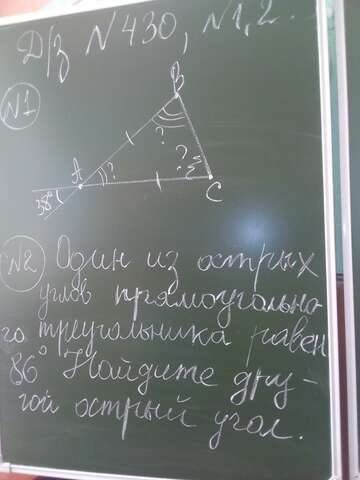 Д/з №430, №1,2.
№1
В
?
А
?
?
38°
С
№2 Один из острых
углов прямоугольно-
го треугольника равен
86° Найдите дру-
гой острый угол.